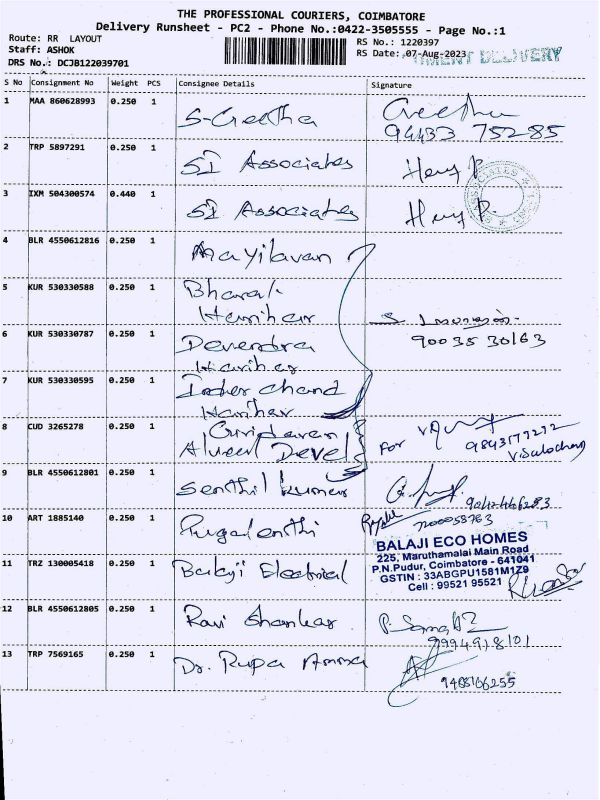 THE PROFESSIONAL COURIERS, COIMBATORE
Delivery Runsheet - PC2 - Phone No.:0422-3505555 - Page No.:1
Route: RR LAYOUT
RS No.: 1220397
Staff: ASHOK
RS Date: 07-Aug-2023
DELIVERY
DRS No.: DCJB122039701
S No Consignment No Weight PCS Consignee Details Signature
1 MAA 860628993 0.250 1 S-Geetha Geetha
94433 75285
2 TRP 5897291 0.250 1 SI Associates
3 IXM 504300574 0.440 1 SI Associates
4 BLR 4550612816 0.250 1 Mayilavan
5 KUR 530330588 0.250 1 Bharat
Harihar
90035 30163
6 KUR 530330787 0.250 1 Devendra
Harihar
7 KUR 530330595 0.250 1 Inder chand
Harihar
8 CUD 3265278 0.250 1
Devel for
9843177272
9 BLR 4550612801 0.250 1 Senthil kumar
10 ART 1885140 0.250 1 Pugalenthi
BALAJI ECO HOMES
225, Maruthamalai Main Road
P.N.Pudur, Coimbatore - 641041
GSTIN : 33ABGPU1581M1Z9
Cell : 99521 95521
11 TRZ 130005418 0.250 1 Balaji Electrical
12 BLR 4550612805 0.250 1 Ravi Shankar
9994918101
13 TRP 7569165 0.250 1 Dr. Rupa Amma
9488166255